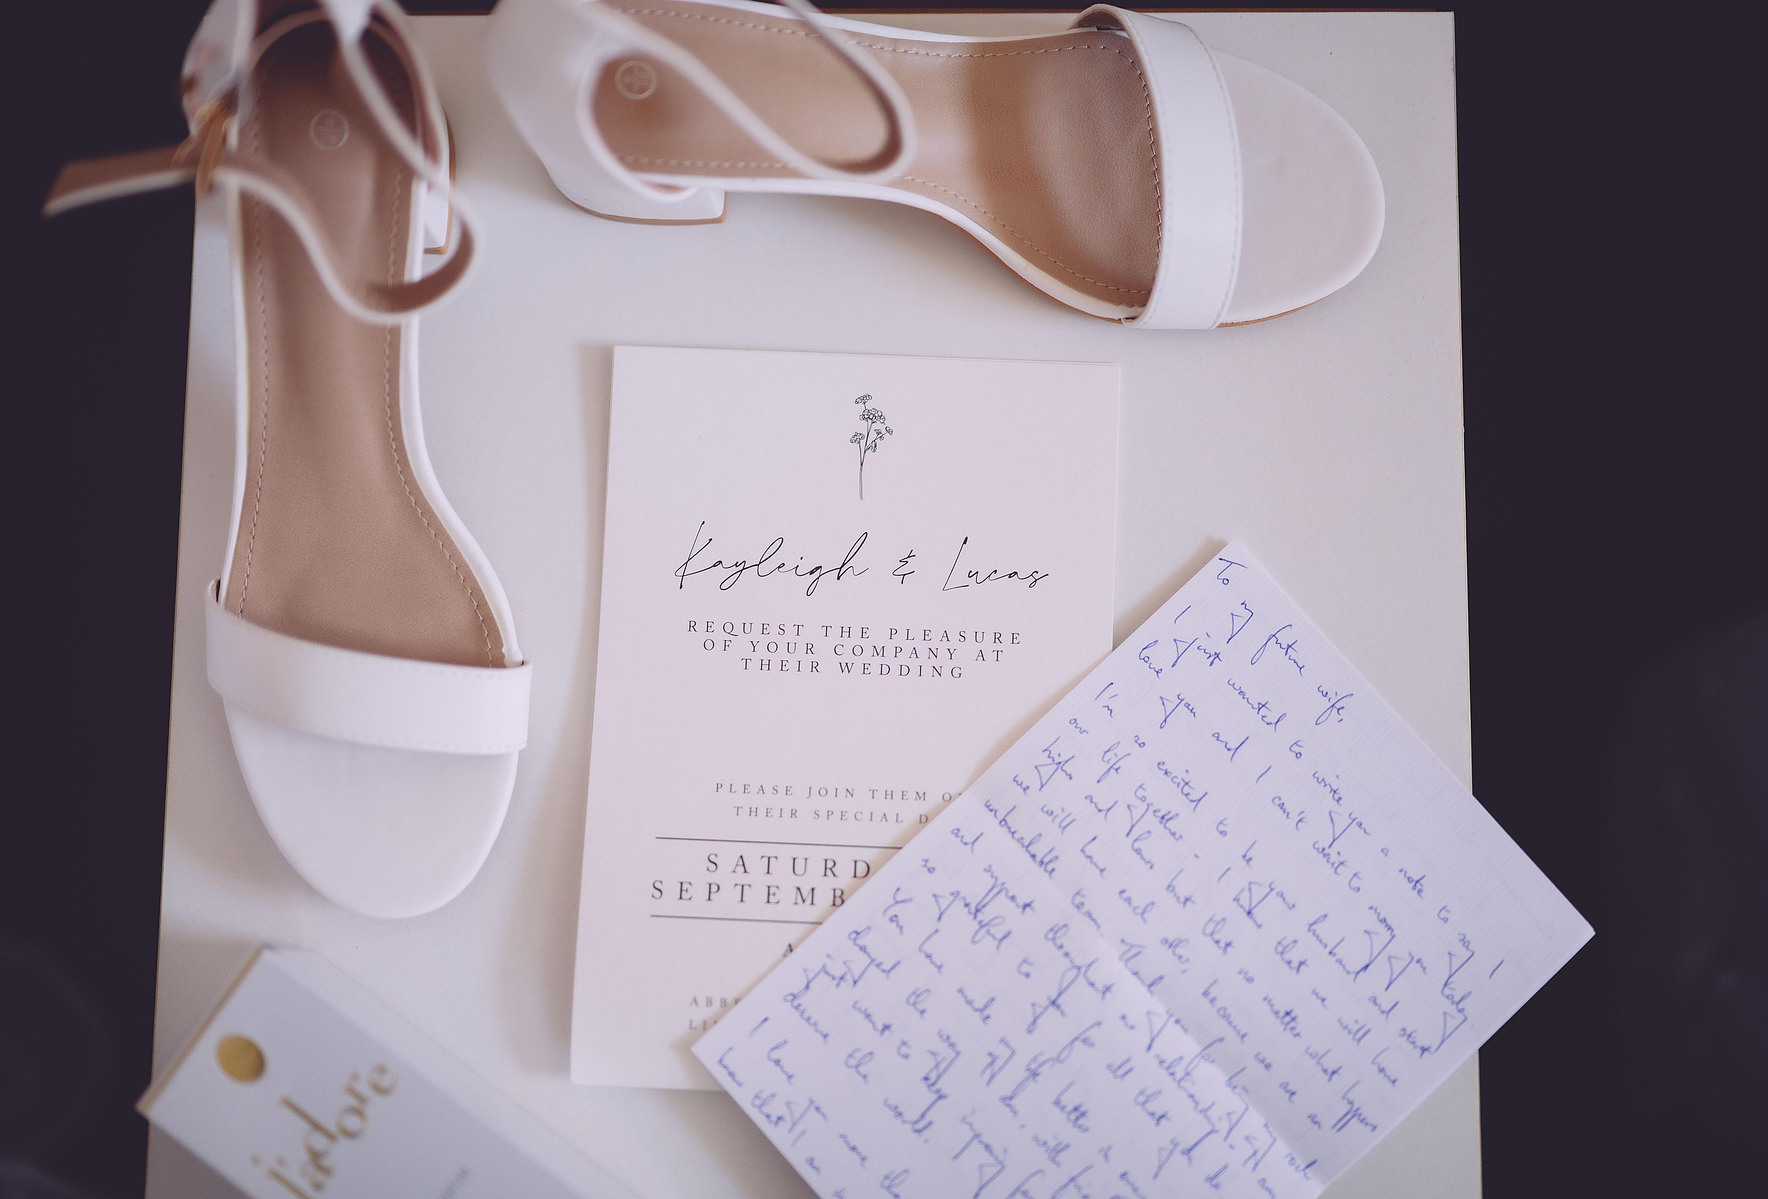 Kayleigh & Lucas
REQUEST THE PLEASURE
OF YOUR COMPANY AT
THEIR WEDDING
PLEASE JOIN THEM
THEIR SPECIAL
SATURD
SEPTEMB
A
ABB
LI
To my future wife,
I just wanted to write you a note to say I
love you and I can't wait to marry you today.
I'm so excited to be your husband and start
our life together - I know that we will have
highs and lows but that no matter what happens
we will have each other, because we are an
unbreakable team. Thank you for being my rock
and support throughout our relationship. I am
so grateful to you for all that you do
You have made my life better in
changed the way
just want to keep
deserve the world.
I love you more
know that I
j'adore